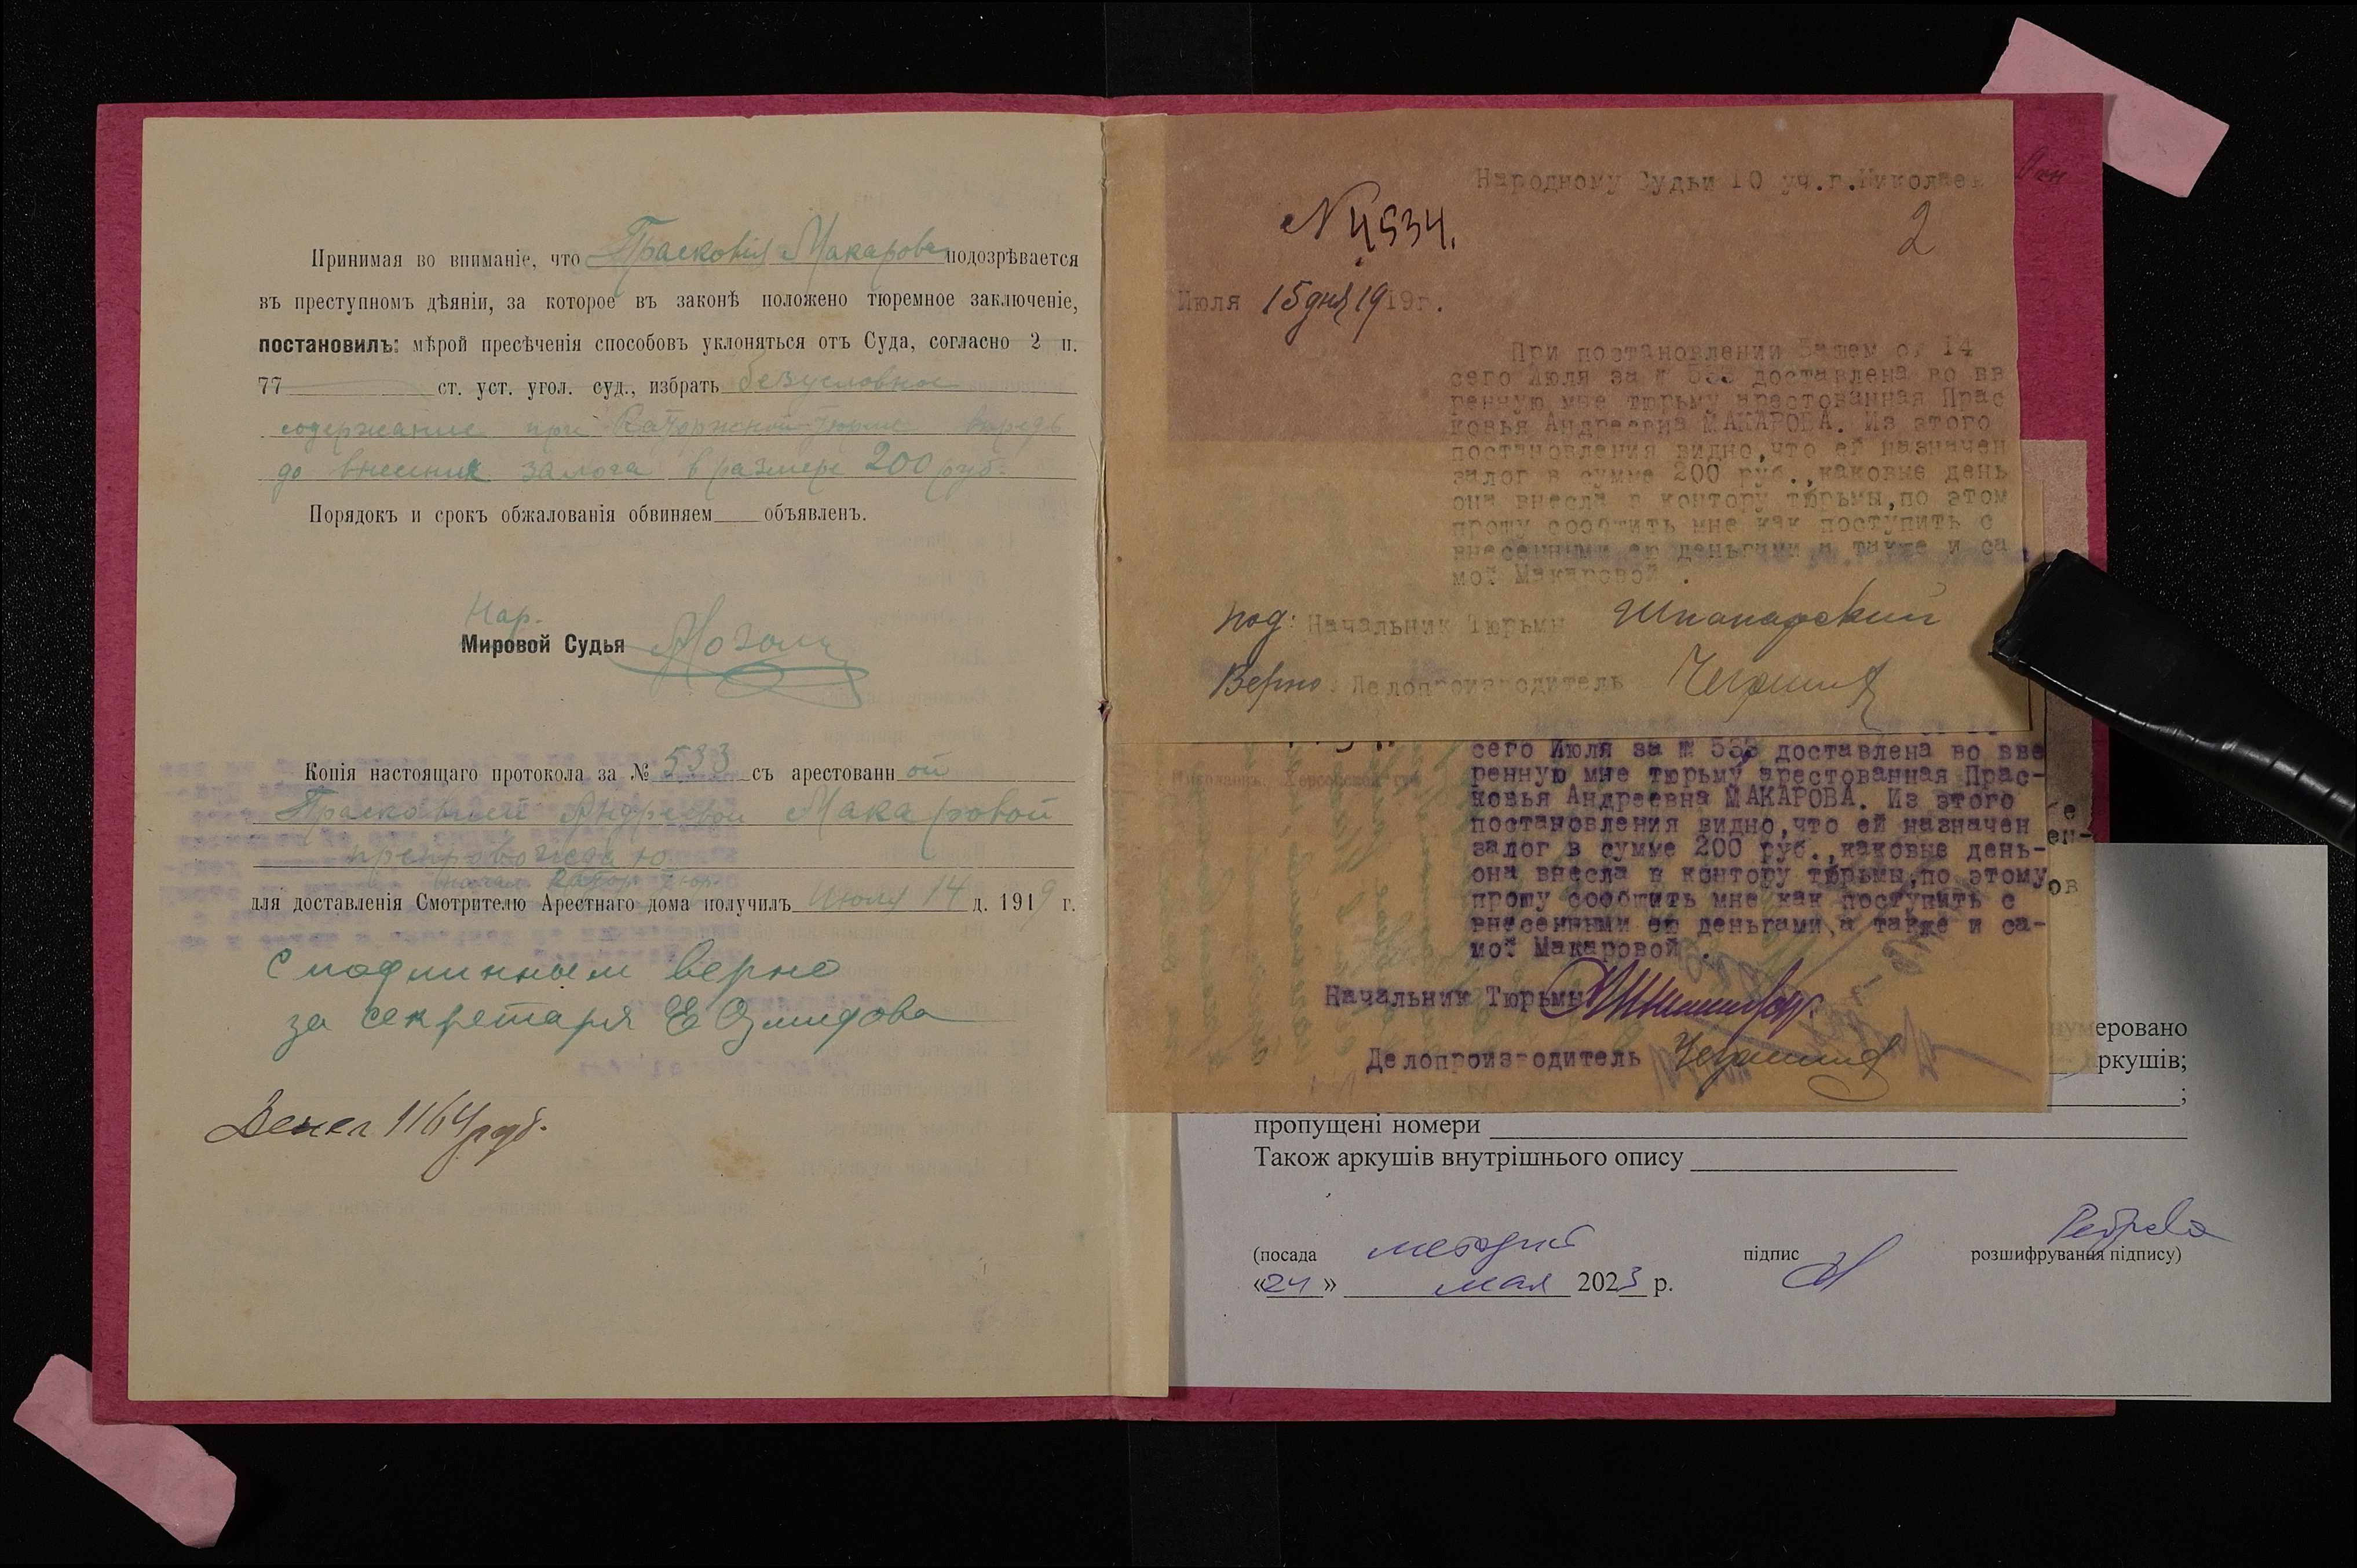 Принимая во вниманіе, что Прасковія Макарова подозрѣвается
въ преступномъ дѣяніи, за которое въ законѣ положено тюремное заключеніе,
постановилъ: мѣрой пресѣченія способовъ уклоняться отъ Суда, согласно 2 п.
77 ст. уст. угол. суд., избрать безусловное
содержание при Каторжной тюрьме впредь
до внесения залога в размере 200 руб.
Порядокъ и срокъ обжалованія обвиняем объявленъ.
Нар.
Мировой Судья
Копія настоящаго протокола за № 533 съ арестованн ой
Прасковьей Андреевой Макаровой
препровождаю
Начал. Катор. Тюр.
для доставленія Смотрителю Арестнаго дома получилъ Июля 14 д. 1919 г.
С подлинным верно
за секретаря Е Озмидова
Денег 1164 руб.
Народному Судьи 10 уч.г.Николаев
2
№ 4534.
Июля 15 дня 1919г.
При постановлении Вашем от 14
сего Июля за № 533 доставлена во вв
ренную мне тюрьму арестованная Прас
ковья Андреевна МАКАРОВА. Из этого
постановления видно,что ей назначен
залог в сумме 200 руб.,каковые день
она внесла в контору тюрьмы,по этом
прошу сообщить мне как поступить с
внесенными ею деньгами а также и са
мой Макаровой .
под: Начальник Тюрьмы
Верно: Делопроизводитель
сего Июля за № 533 доставлена во вве
ренную мне тюрьму арестованная Прас-
ковья Андреевна МАКАРОВА. Из этого
постановления видно,что ей назначен
залог в сумме 200 руб.,каковые день-
она внесла в контору тюрьмы,по этому
прошу сообщить мне как поступить с
внесенными ею деньгами,а также и са-
мой Макаровой .
Начальник Тюрьмы
Делопроизводитель
бе
ен-
ов
умеровано
ркушів;
;
пропущені номери
Також аркушів внутрішнього опису
(посада методист підпис розшифрування підпису)
«24» мая 2023 р.